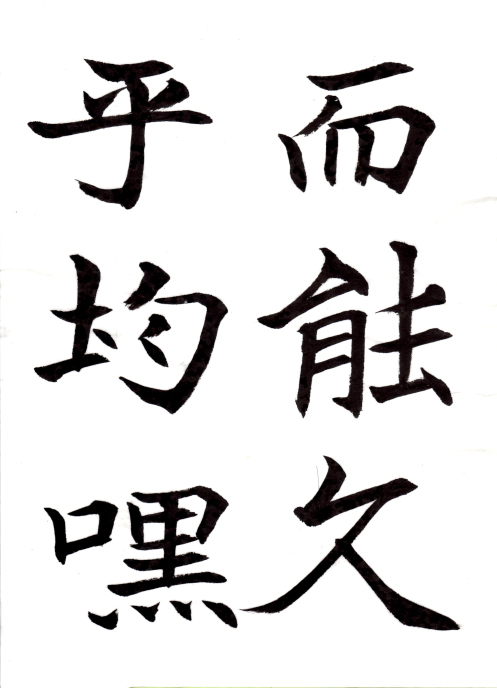 而能久
乎均嘿